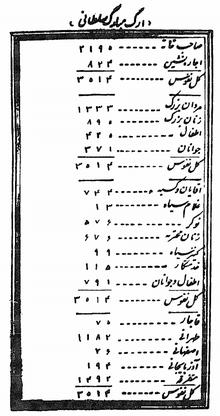 (ارگ مبارک سلطانی)
صاحب خانه ۲۱۹۰
اجاره‌نشین ۸۲۴
کل نفوس ۳۰۱۴
مردان بزرگ ۱۳۳۳
زنان بزرگ
اطفال
جوانان ۳۷۱
کل نفوس ۳۰۱۴
آقایان و کسبه ۷۴۴
غلام سیاه ۱۳
نوکر ۵۷۶
زنان محترمه ۶۷۶
کنیز سیاه ۹۹
خدمتکار ۱۱۵
اطفال و جوانان ۷۹۱
کل نفوس ۳۰۱۴
قاجار
طهرانی ۱۱۸۲
اصفهانی
آذربایجانی ۱۹۴
متفرقه
کل نفوس ۳۰۱۴